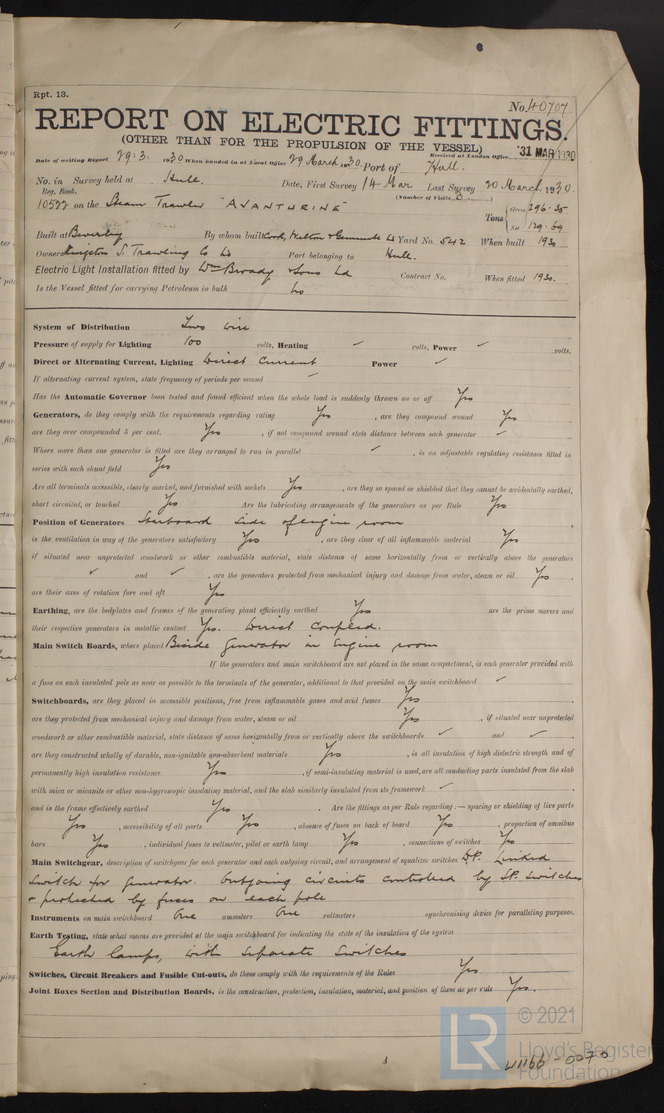 Rpt. 13.
No. 40707
REPORT ON ELECTRIC FITTINGS.
(OTHER THAN FOR THE PROPULSION OF THE VESSEL)
Date of writing Report 29.3. 1930 When handed in at Local Office 29 March 1930 Port of Hull. Received at London Office 31 MAR 1930
No. in Survey held at Hull. Date, First Survey 14 Mar Last Survey 20 March 1930.
Reg. Book. (Number of Visits
10522 on the Steam Trawler "AVANTURINE" Tons { Gross 296.35
Net 129.69
Built at Beverley By whom built Cook, Welton & Gemmell Ld Yard No. 542 When built 1930
Owners Kingston S. Trawling Co Ld Port belonging to Hull.
Electric Light Installation fitted by Wm Broady & Sons Ld Contract No. When fitted 1930.
Is the Vessel fitted for carrying Petroleum in bulk No
System of Distribution Two wire
Pressure of supply for Lighting 100 volts, Heating ✓ volts, Power ✓ volts.
Direct or Alternating Current, Lighting Direct Current Power ✓
If alternating current system, state frequency of periods per second ✓
Has the Automatic Governor been tested and found efficient when the whole load is suddenly thrown on or off Yes
Generators, do they comply with the requirements regarding rating Yes, are they compound wound Yes
are they over compounded 5 per cent. Yes, if not compound wound state distance between each generator ✓
Where more than one generator is fitted are they arranged to run in parallel ✓, is an adjustable regulating resistance fitted in
series with each shunt field Yes
Are all terminals accessible, clearly marked, and furnished with sockets Yes, are they so spaced or shielded that they cannot be accidentally earthed,
short circuited, or touched Yes Are the lubricating arrangements of the generators as per Rule Yes
Position of Generators Starboard side of engine room
is the ventilation in way of the generators satisfactory Yes, are they clear of all inflammable material Yes
if situated near unprotected woodwork or other combustible material, state distance of same horizontally from or vertically above the generators
✓ and ✓, are the generators protected from mechanical injury and damage from water, steam or oil Yes.
are their axes of rotation fore and aft Yes
Earthing, are the bedplates and frames of the generating plant efficiently earthed Yes are the prime movers and
their respective generators in metallic contact Yes. Direct Coupled.
Main Switch Boards, where placed Beside Generator in Engine room
If the generators and main switchboard are not placed in the same compartment, is each generator provided with
a fuse on each insulated pole as near as possible to the terminals of the generator, additional to that provided on the main switchboard ✓
Switchboards, are they placed in accessible positions, free from inflammable gases and acid fumes Yes
are they protected from mechanical injury and damage from water, steam or oil Yes, if situated near unprotected
woodwork or other combustible material, state distance of same horizontally from or vertically above the switchboards ✓ and ✓,
are they constructed wholly of durable, non-ignitable non-absorbent materials Yes, is all insulation of high dielectric strength and of
permanently high insulation resistance Yes, if semi-insulating material is used, are all conducting parts insulated from the slab
with mica or micanite or other non-hygroscopic insulating material, and the slab similarly insulated from its framework ✓
and is the frame effectively earthed Yes. Are the fittings as per Rule regarding:— spacing or shielding of live parts
Yes, accessibility of all parts Yes, absence of fuses on back of board Yes, proportion of omnibus
bars Yes, individual fuses to voltmeter, pilot or earth lamp Yes, connections of switches Yes
Main Switchgear, description of switchgear for each generator and each outgoing circuit, and arrangement of equalizer switches D.P. Linked
Switch for Generator. Outgoing circuits controlled by S.P. Switches
& protected by fuses on each pole
Instruments on main switchboard One ammeters One voltmeters synchronising device for paralleling purposes.
Earth Testing, state what means are provided at the main switchboard for indicating the state of the insulation of the system
Earth lamps, with separate switches
Switches, Circuit Breakers and Fusible Cut-outs, do these comply with the requirements of the Rules Yes
Joint Boxes Section and Distribution Boards, is the construction, protection, insulation, material, and position of these as per rule Yes.
LR
© 2021
Lloyd's Register
Foundation
W1166-0070